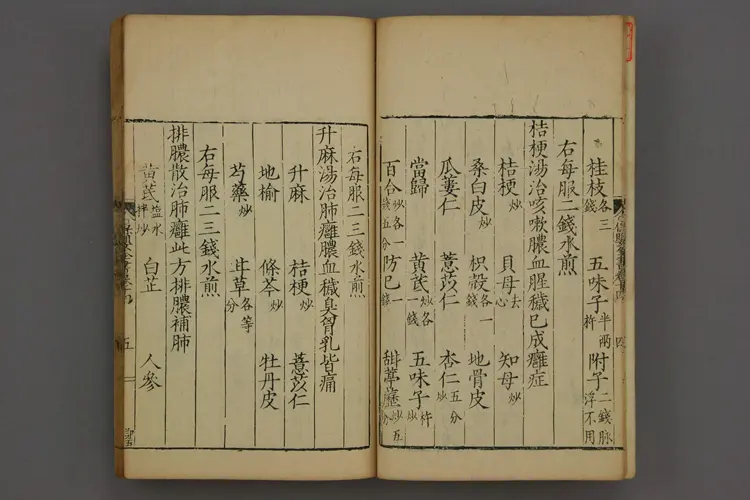 桂枝各三錢 五味子半兩杵 附子二錢脉浮不用
右每服二錢水煎
桔梗湯治咳嗽膿血腥穢已成癰症
桔梗炒 貝母去心 知母炒
桑白皮炒 枳殼各一錢 地骨皮
瓜蔞仁 薏苡仁 杏仁五分炒
當歸 黃芪炒各一錢 五味子杵炒
百合炒各一錢五分 防已一錢 甜葶藶炒五分
右每服二三錢水煎
升麻湯治肺癰膿血穢臭胷乳皆痛
升麻 桔梗炒 薏苡仁
地榆 條芩炒 牡丹皮
芍藥炒 甘草各等分
右每服二三錢水煎
排膿散治肺癰此方排膿補肺
黃芪鹽水拌炒 白芷 人參
五